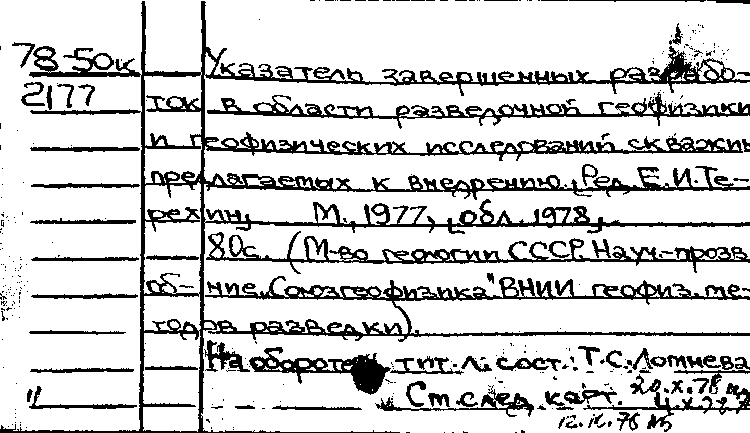 78-50к Указатель завершенных разрабо-
2177 ток в области разведочной геофизики
и геофизических исследований скважин
предлагаемых к внедрению, Ред. Е.И.Те-
рехин, М., 1977, [обл. 1978,
80с. (М-во геологии СССР. Науч.-произв
об-ние „Союзгеофизика" ВНИИ геофиз. ме-
тодов разведки).
На обороте тит. л. сост.: Т.С.Лотнева
" См. след. карт. 20.X.78
12.IX.78